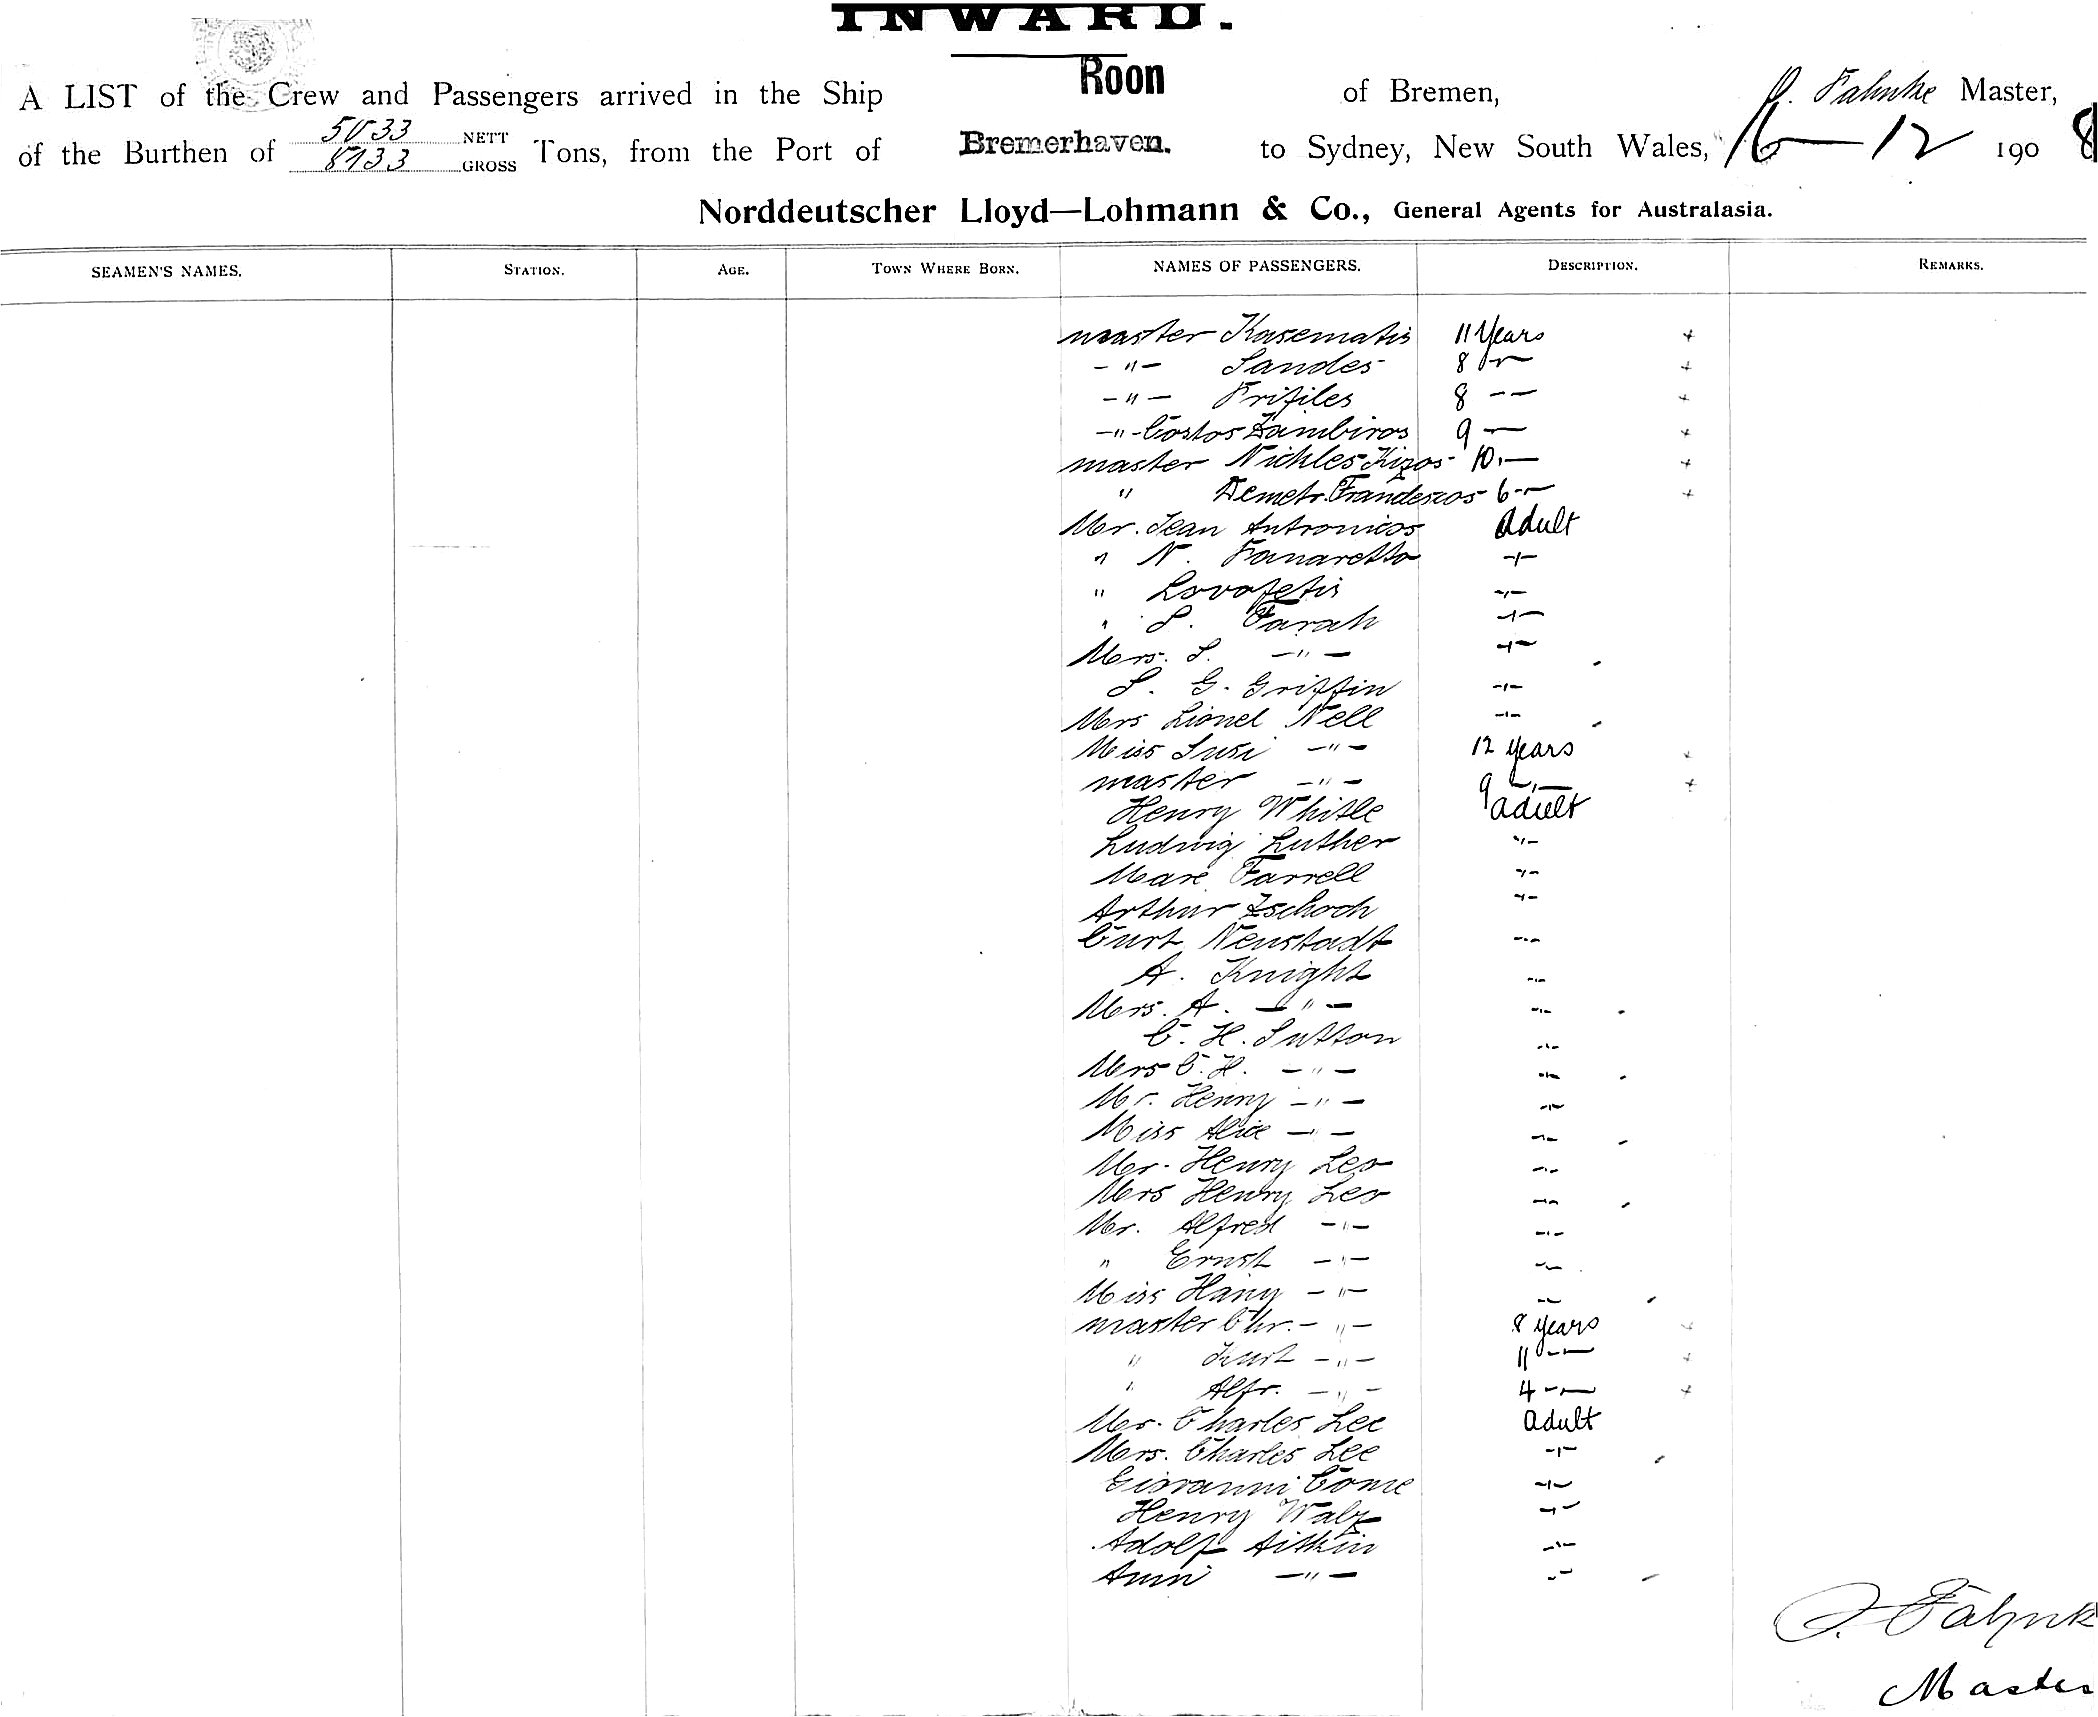 INWARD.
A LIST of the Crew and Passengers arrived in the Ship Roon of Bremen, Fahnke Master,
of the Burthen of 5033 NETT 8133 GROSS Tons, from the Port of Bremerhaven. to Sydney, New South Wales, 16-12 1908
Norddeutscher Lloyd—Lohmann & Co., General Agents for Australasia.
SEAMEN'S NAMES. STATION. AGE. TOWN WHERE BORN. NAMES OF PASSENGERS. DESCRIPTION. REMARKS.
master Kasematis 11 Years +
-"- Sandes 8 -"- +
-"- Frifiles 8 -"- +
-"- Costos Zambiros 9 -"- +
master Nichles Kizos 10 -"- +
" Demetr. 6 -"- +
Mr. Jean Antronicos adult
" N. Fanaretto -"-
" -"-
" S. Farah -"-
Mrs. S. -"- -"-
S. G. Griffin -"-
Mrs Lionel Nell -"-
Miss Susi -"- 12 years +
master -"- 9 -"- +
Henry Whitle adult
Ludwig Luther -"-
Mare Farrell -"-
Arthur Zschoch -"-
Curt Neustadt -"-
A. Knight -"-
Mrs. A. -"- -"-
C. H. Sutton -"-
Mrs C. H. -"- -"-
Mr. Henry -"- -"-
Miss Alice -"- -"-
Mr. Henry Leo -"-
Mrs Henry Leo -"-
Mr. Alfred -"- -"-
" Ernst -"- -"-
Miss Hany -"- -"-
master Chr. -"- 8 years +
" Kurt -"- 11 -"- +
" Alfr. -"- 4 -"- +
Mr. Charles Lee adult
Mrs. Charles Lee -"-
Giovanni Come -"-
Henry Walz -"-
Adolf Aitkin -"-
Anni -"- -"-
Fahnk
Master